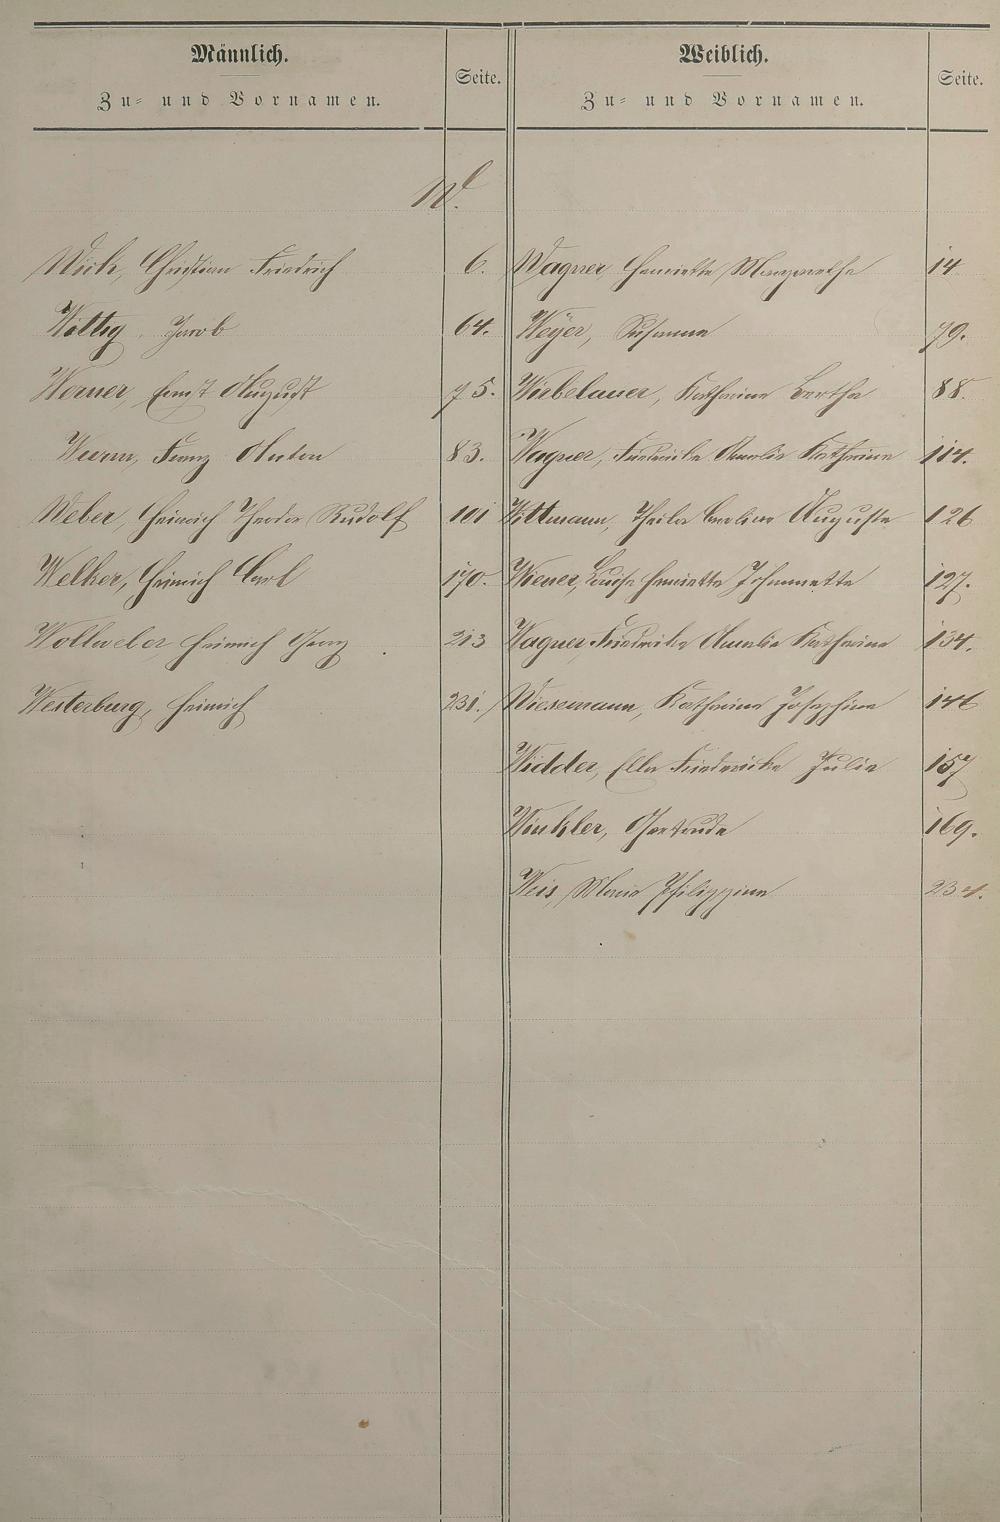 Männlich.
Zu- und Vornamen.
Seite.
Weiblich.
Zu- und Vornamen.
Seite.
W.
Christian Friedrich 6.
Wittig Jacob 64.
Werner, Ernst August 75.
Wurm, Franz Anton 83.
Weber, Heinrich Theodor Rudolf 101
Welker, Heinrich Carl 170.
Wollweber, Heinrich Georg 213
Westerburg, Heinrich 231.
Wagner, Henriette Margarethe 14
Weÿer, Susanna 79.
Wiebelauer, Katharina Bertha 88.
Wagner, Friedricke Amalie Katharina 114.
Wittmann, Carolina Auguste 126
Wiener, Louise Henriette Johannette 127.
Wagner, Friedricke Amalie Katharina 134.
Wiesemann, Katharina Josephine 146
Widder, Ella Friedericke Julie 157
Winkler, Gertrude 169.
Weis, Maria Philippina 234.